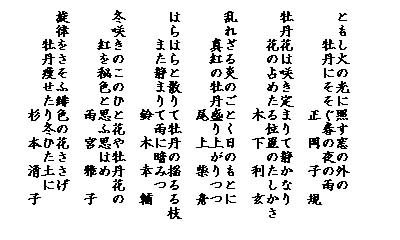 ともし火の光に照す窓の外の
牡丹にそそぐ春の夜の雨
正岡子規
牡丹花は咲き定まりて静かなり
花の占めたる位置のたしかさ
木下利玄
乱れざる炎のごとく日のもとに
真紅の牡丹盛り上がりつつ
尾上柴舟
はらはらと散りて牡丹の揺るる枝
また静まりて雨に暗みつ
鈴木幸輔
冬咲きのこのひと花や牡丹花の
紅を秘色と思ふ思はめ
雨宮雅子
旋律をさそふ緋色の花ささげ
牡丹痩せたり冬ひた土に
杉本清子